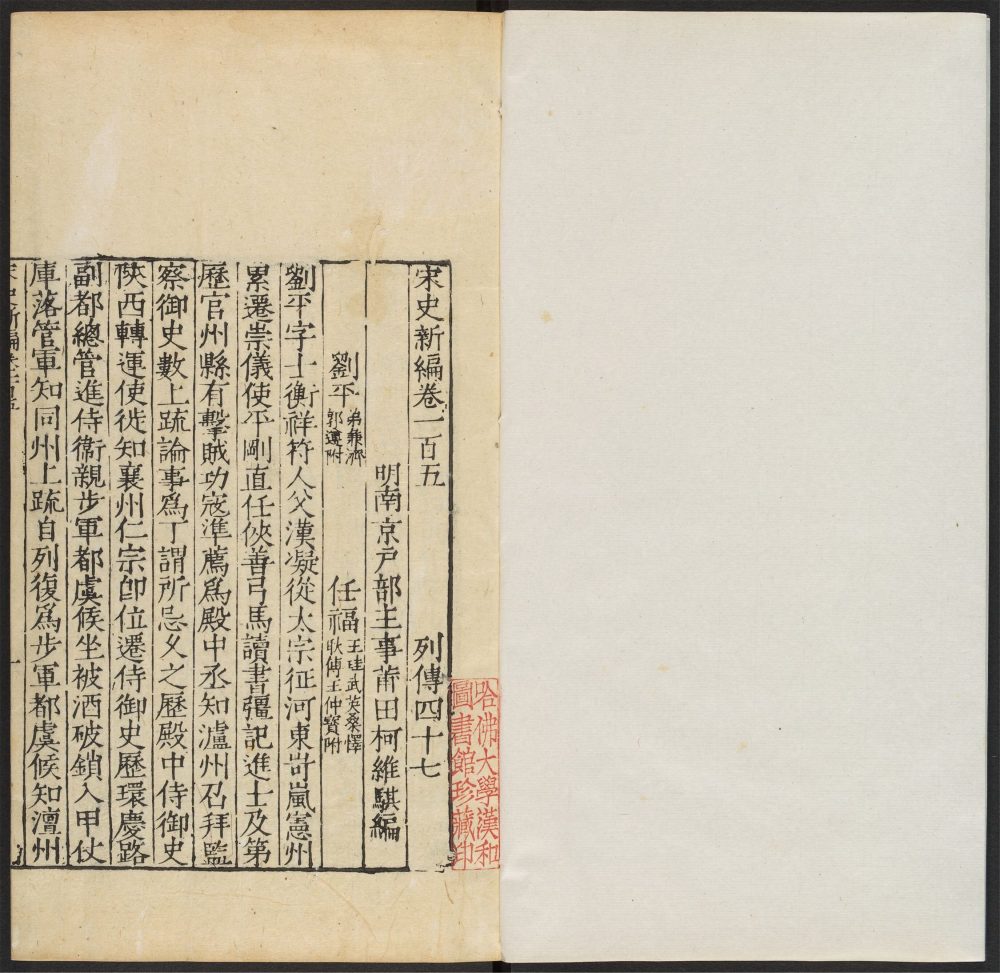 宋史新編卷一百五 列傳四十七
明南京戶部主事莆田柯維騏編
劉平 弟兼濟 郭遵附 任福 王珪武英桑懌 耿傅王仲寶附
劉平字士衡祥符人父漢凝從太宗征河東岢嵐憲州
累遷崇儀使平剛直任俠善弓馬讀書彊記進士及第
歷官州縣有擊賊功寇準薦爲殿中丞知瀘州召拜監
察御史數上疏論事爲丁謂所忌久之歷殿中侍御史
陝西轉運使徙知襄州仁宗卽位遷侍御史歷環慶路
副都總管進侍衞親步軍都虞候坐被酒破鎖入甲仗
庫落管軍知同州上疏自列復爲步軍都虞候知澶州
宋史新編卷一百五 一
哈佛大學漢和
圖書館珍藏印